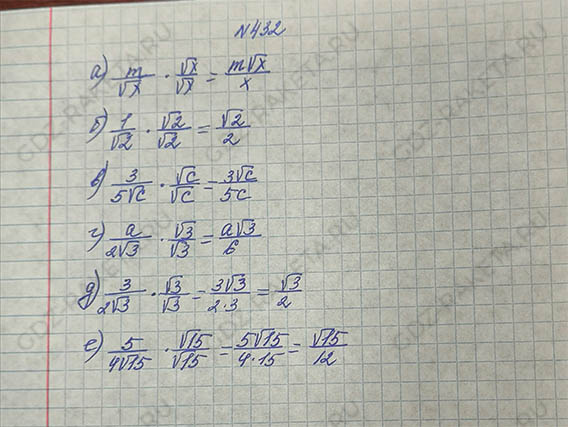 N432
а) m/√x · √x/√x = m√x/x
б) 1/√2 · √2/√2 = √2/2
в) 3/5√c · √c/√c = 3√c/5c
г) a/2√3 · √3/√3 = a√3/6
д) 3/2√3 · √3/√3 = 3√3/2·3 = √3/2
е) 5/4√15 · √15/√15 = 5√15/4·15 = √15/12
GDZ-RAKETA.RU